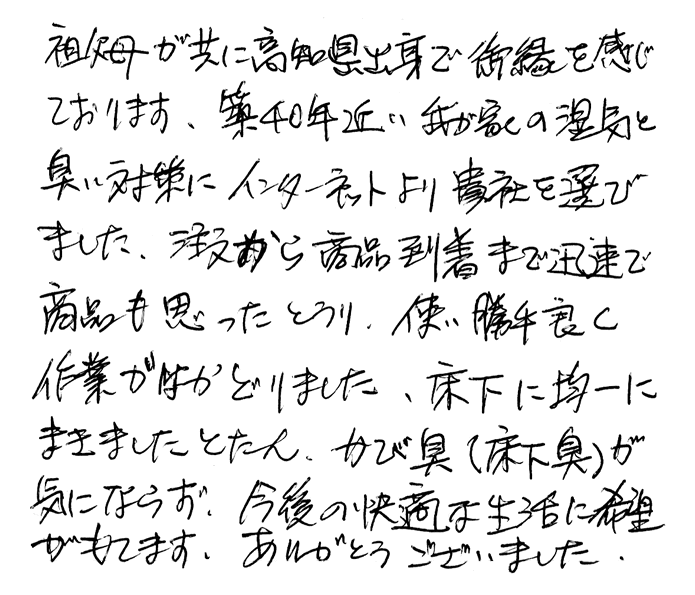 祖父母が共に高知県出身で御縁を感じ
ております、築40年近い我が家の湿気と
臭い対策にインターネットより貴社を選び
ました、注文から商品到着まで迅速で
商品も思ったとうり、使い勝手良く
作業がはかどりました、床下に均一に
まきましたとたん、かび臭(床下臭)が
気にならず、今後の快適な生活に希望
がもてます、ありがとうございました。